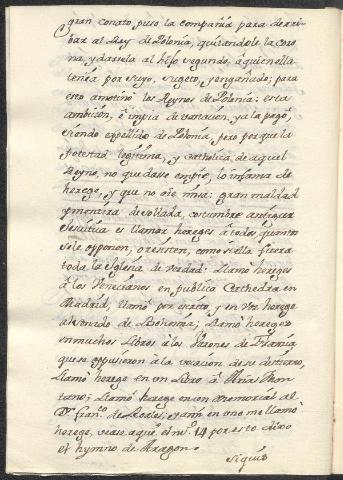 gran conato, puso la compañia para derri-
bar al Rey de Polonia, quitandole la coro
na, y darsela al hijo segundo, à quien ella
tenia por suyo, sugeto, y engañado; para
esto amotinò los Reynos de Polonia: esta
ambicion, è impia de ya la pagò,
siendo expellida de Polonia, pero porque la
potestad legitima, y catholica, de aquel
Reyno, no quedasse impie, lo infama de
herege, y que no oie misa: gran maldad
y mentira desollada, costumbre antigua
Jesuitica es llamar hereges à todos quantos
se le opponen, ò resisten, como si ella fuera
toda la Iglesia de verdad: llamò hereges
à los Venecianos en publica Cathedra en
Madrid, llamò por escrito, y en voz herege
al de Bohemia, llamò hereges
en muchos Libros à los Varones de Francia
que se oppusieron à la de su destierro,
llamò herege en un Libro à Arias Mon-
tano; llamò herege en un memorial al
Dr. franco. de Robles; y aun en uno me llamò
herege, vease aqui el no. 14 por esto dixo
el hymno de Aragon.
Siquis